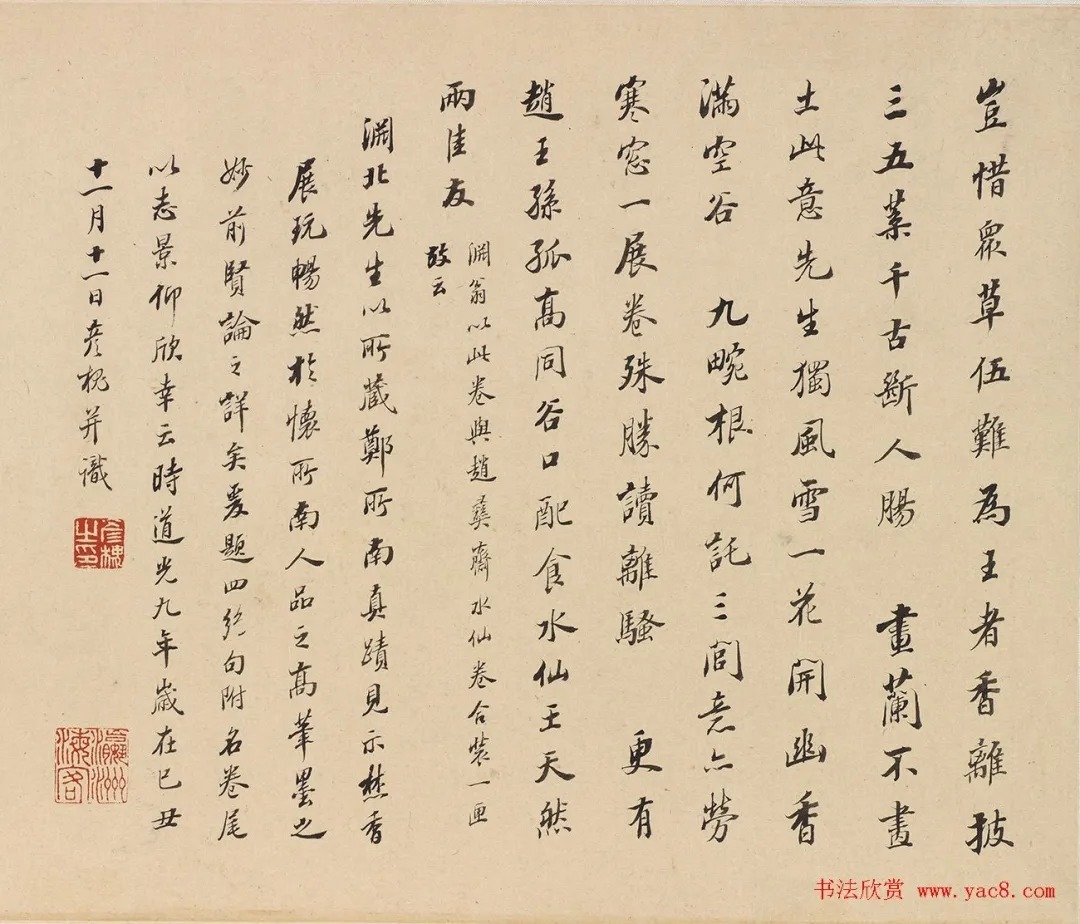 豈惜眾草伍難為王者香離披
三五葉千古斷人腸 畫蘭不畫
土此意先生獨風雪一花開幽香
滿空谷 九畹根何託三閭意亦勞
寒窓一展卷殊勝讀離騷 更有
趙王孫孤高同谷口配食水仙王天然
兩佳友
淵翁以此卷與趙彝齋水仙卷合裝一匣
故云
淵北先生以所藏鄭所南真蹟見示焚香
展玩暢然於懷所南人品之高筆墨之
妙前賢論之詳矣爰題四絕句附名卷尾
以志景仰欣幸云時道光九年歲在己丑
十一月十一日彥槐并識
彥槐之印
瀛洲海客
书法欣赏 www.yac8.com